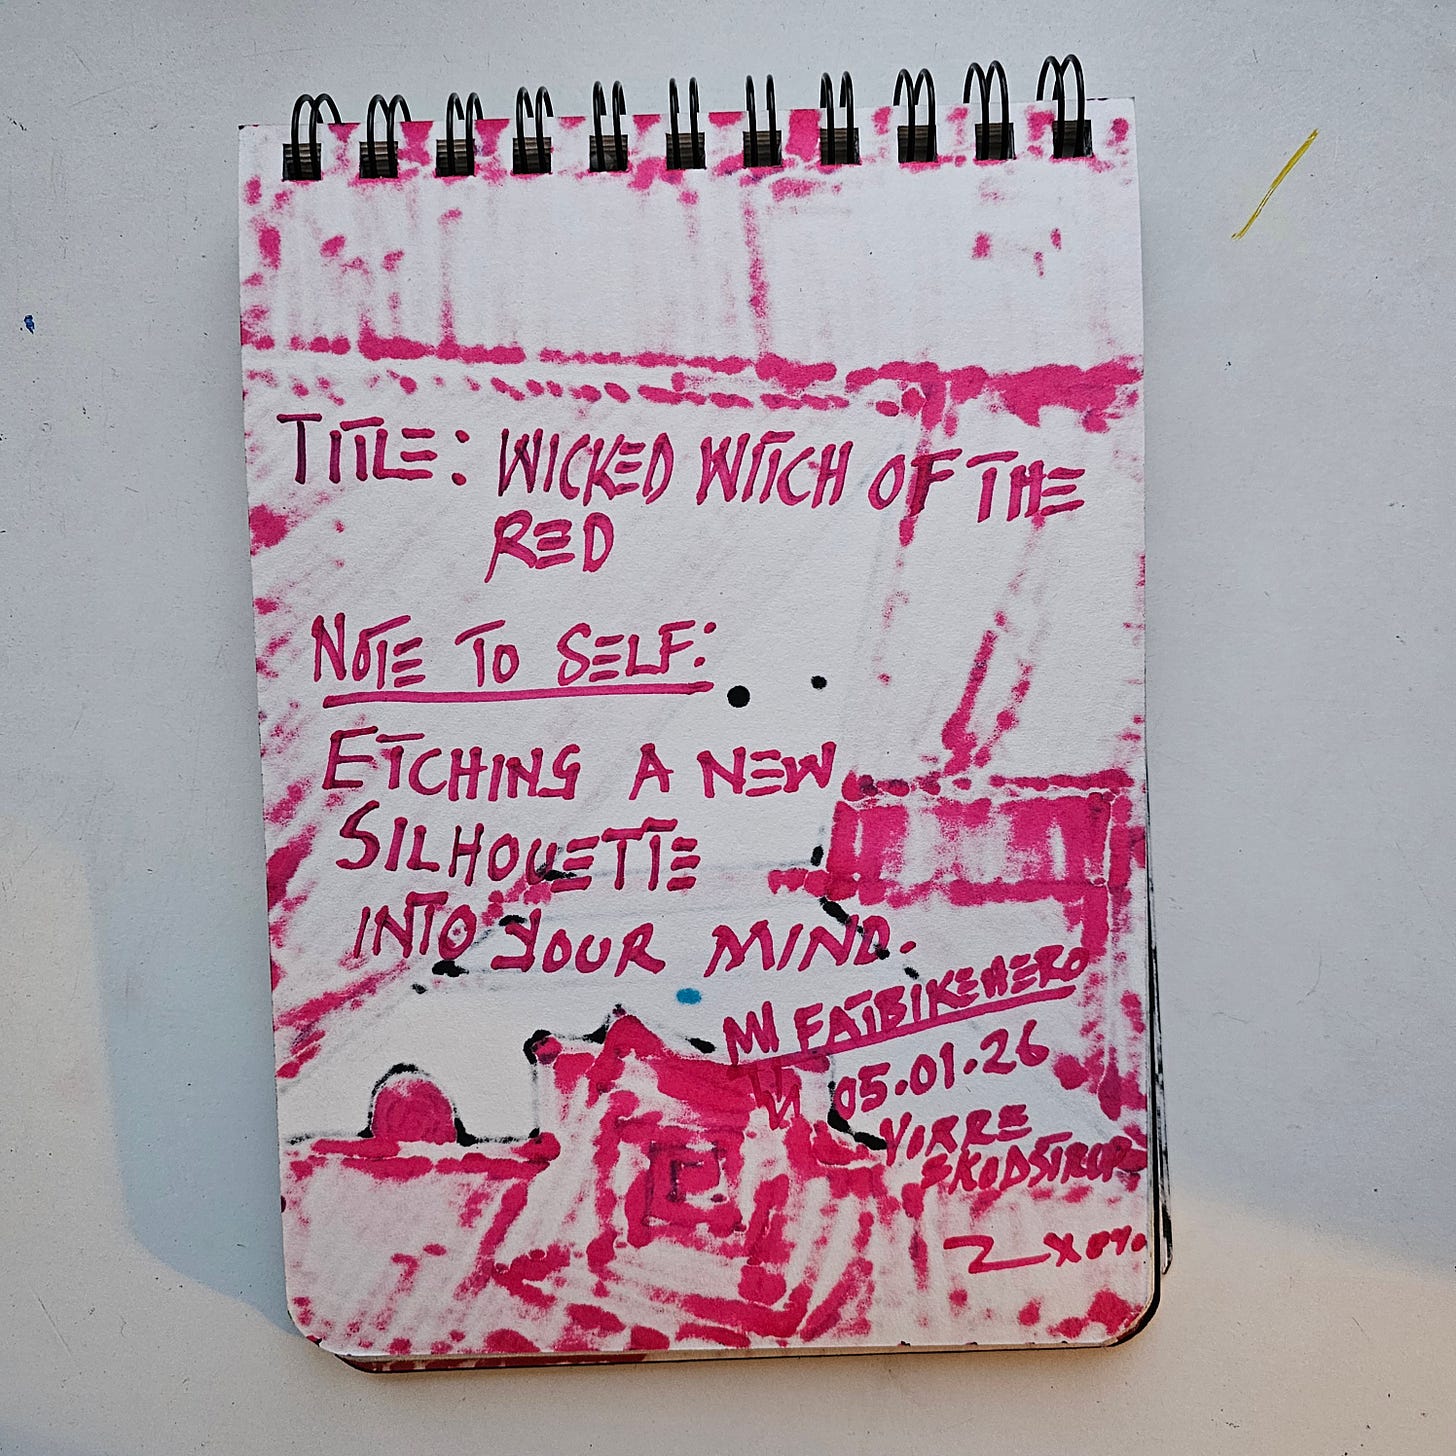 TITLE: WICKED WITCH OF THE
RED
NOTE TO SELF:
ETCHING A NEW
SILHOUETTE
INTO YOUR MIND.
FATBIKEHERO
05.01.26
SKODSTRUP